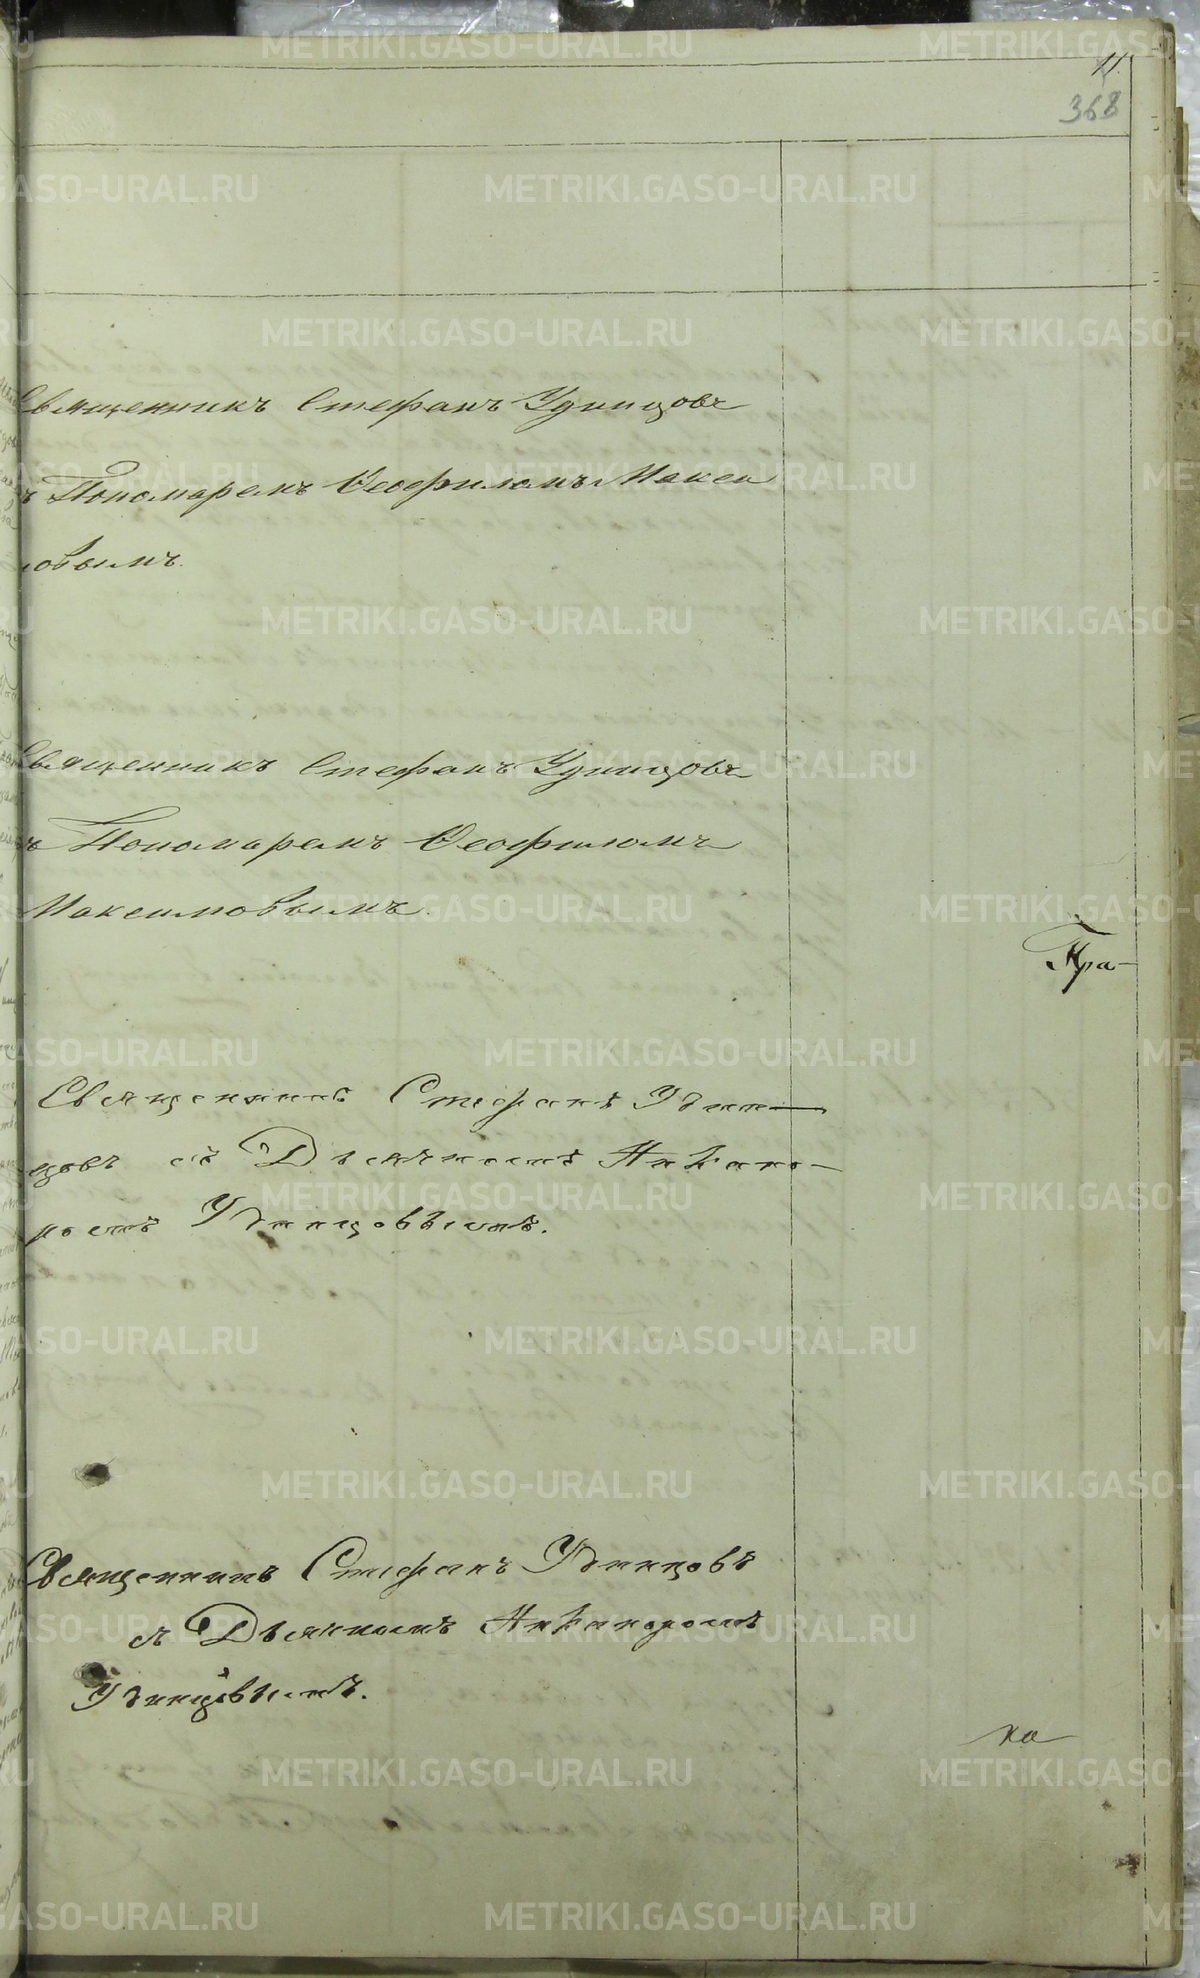 11.
368
Священникъ Стефанъ Удинцовъ
съ Пономаремъ Ѳеофиломъ Макси
мовымъ.
Священникъ Стефанъ Удинцовъ
съ Пономаремъ Ѳеофиломъ
Максимовымъ.
Пра-
Священникъ Стефанъ Удин-
цовъ съ Дьякономъ Никано-
ромъ Удинцовымъ.
Священникъ Стефанъ Удинцовъ
съ Дьякономъ Никаноромъ
Удинцовымъ.
ка
METRIKI.GASO-URAL.RU